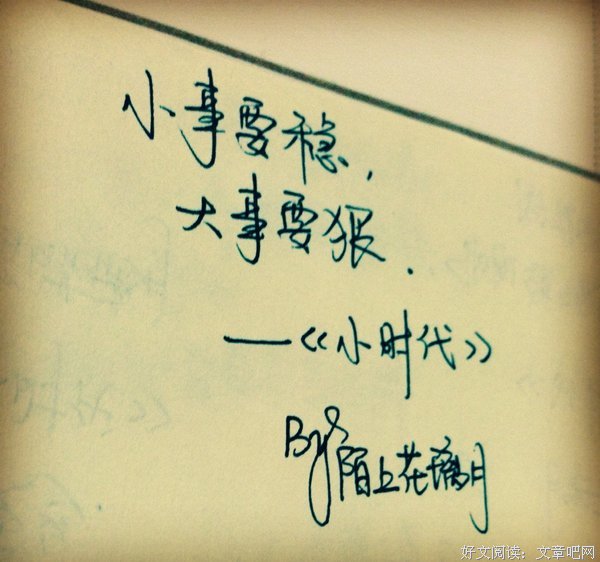 小事要稳,
大事要狠.
—《小时代》
By 陌上花璃月
好文阅读：文章吧网